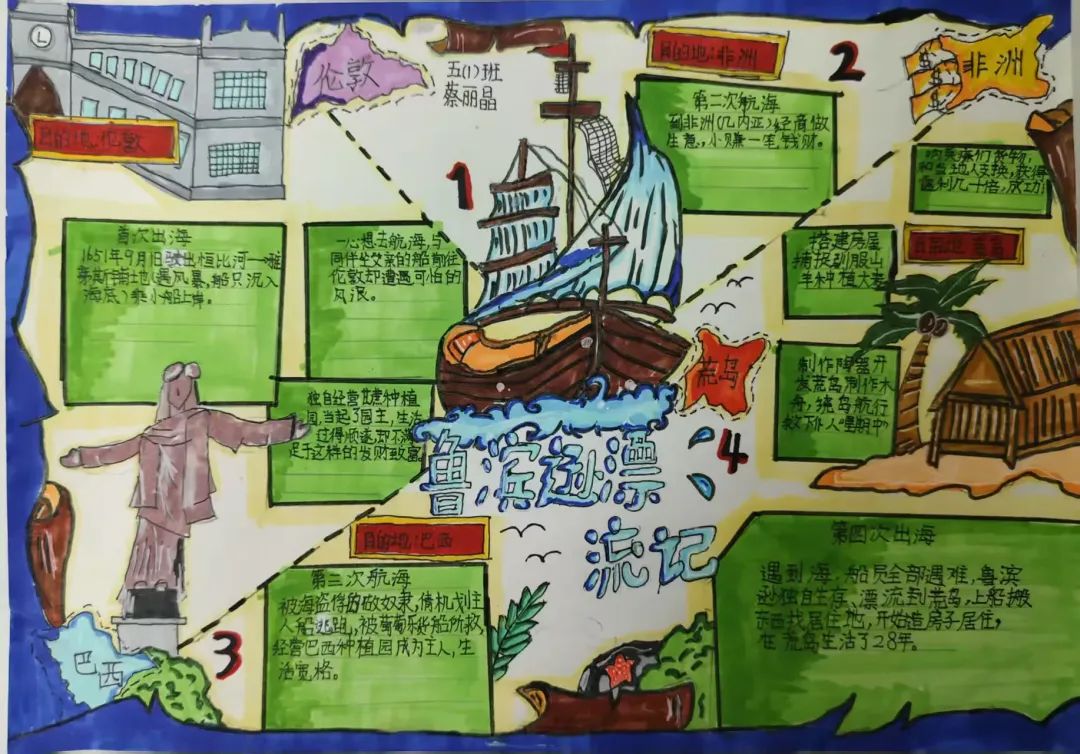 伦敦
五(1)班
蔡丽晶
目的地:伦敦
1
首次出海
1651年9月1日驶出恒比河一桩
海底,乘小船上岸。
一心想去航海,与
同伴坐父亲的船前往
伦敦却遭遇可怕的
风浪。
目的地:非洲
2
非洲
第二次航海
到非洲(几内亚)经商做
生意,小赚一笔钱财。
和当地人支换,获得
3
巴西
目的地:巴西
独自经营
种植
园,当起了园主,生活
过得顺遂,却不满
足于这样的发财致富
第三次航海
人船逃跑,被葡萄牙货船所救,
经营巴西种植园成为主人,生
活宽格。
4
荒岛
搭建房屋
捕捉驯服山
羊种植大麦
制作陶器开
发荒岛制作木
舟,绕岛航行
第四次出海
遇到海,船员全部遇难,鲁滨
逊独自生存,漂流到荒岛,上船搬
东西找居住地,开始造房子居住,
在荒岛生活了28年。
鲁滨逊漂
流记